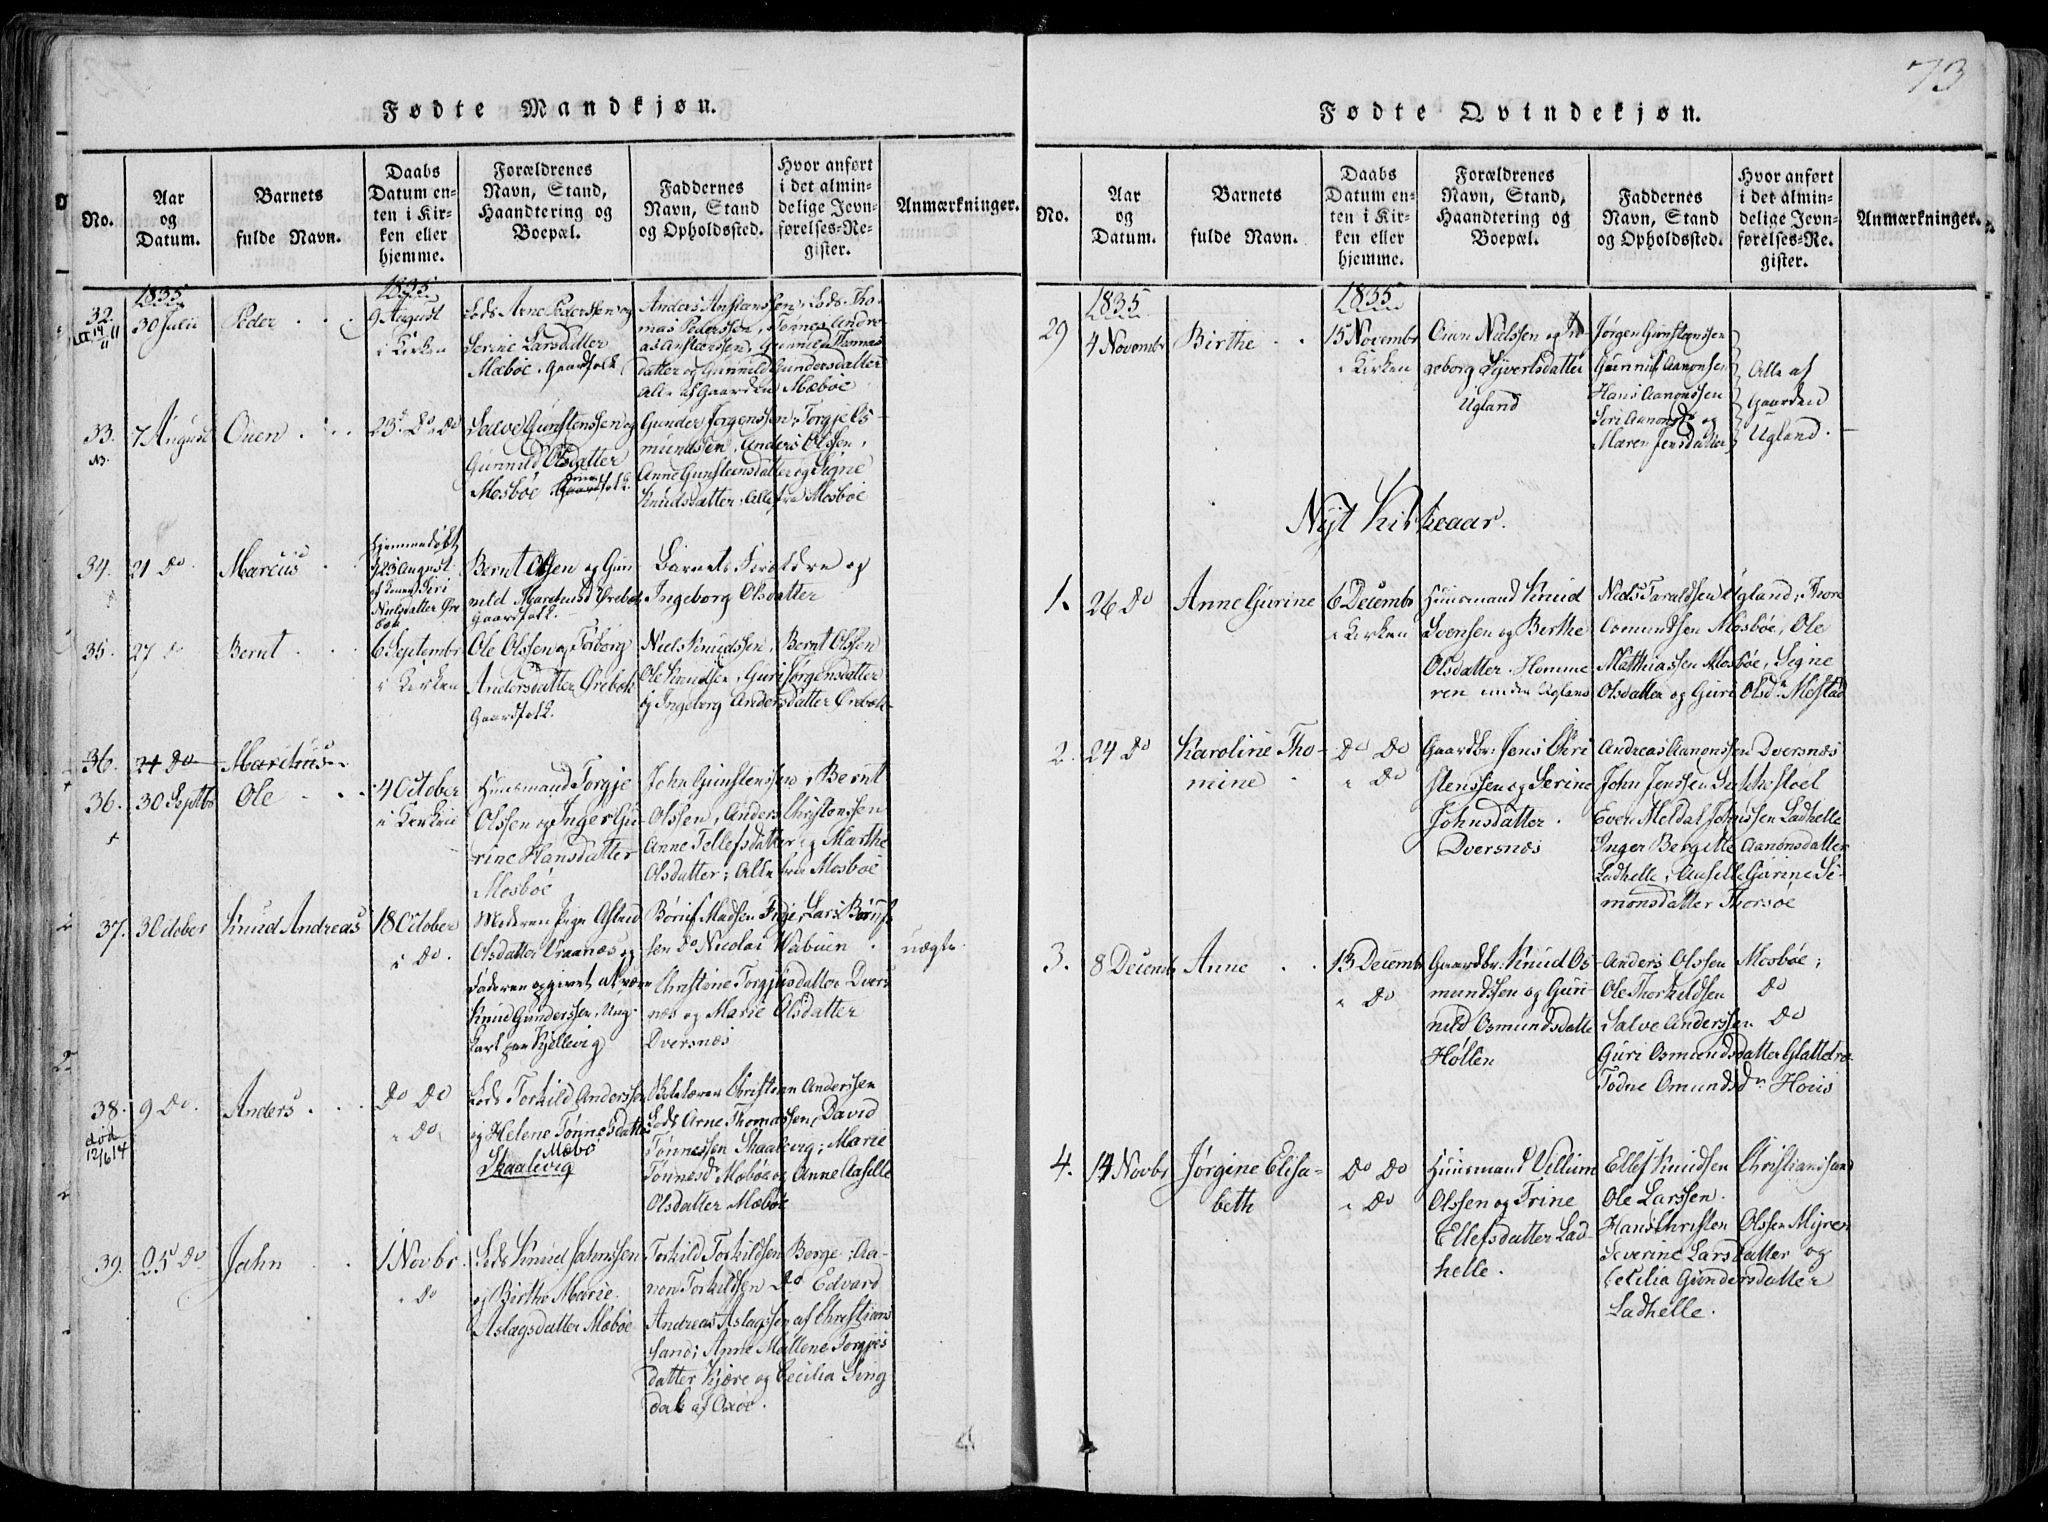 73
Fødte Mandkjøn.
No.
Aar
og
Datum.
Barnets
fulde Navn.
Daabs
Datum en-
ten i Kir-
ken eller
hjemme.
Forældrenes
Navn, Stand,
Haandtering og
Boepæl.
Faddernes
Navn, Stand
og Opholdssted.
Hvor anført
i det almin-
delige Jevn-
førelses-Re-
gister.
Anmærkninger.
32.
1835
30 Julii
Peder
1835
9 August
i Kirken
Lods Arne Pederssen og
Serine Larsdatter
Mæbøe. Gaardfolk
Anders Anstensen, Lods Tho-
mas Pederssen, Tønnes Andre-
as Anstenssen, Gunnild Thomas
datter og Gunnild Gundersdatter
Alle af Gaarden Mæbøe
33.
7 August
Ouen
23. Do Do
Salve Gunstenssen og
Gunnild Olsdatter
Mosbøe Gaardfolk.
Gunder Jørgenssen, Torgje Os-
mundsen, Anders Olssen,
Anne Gunsteinsdatter og Signe
Knudsdatter, Alle fra Mosbøe
34.
21 Do
Marcus
Hjemmedøbt
23 August
Nielsdatter Øre
bek
Bernt Olsen og Gun
nild Ørebek
Gaardfolk.
Barnets Forældre og
Ingeborg Olsdatter
35.
27 D
Bernt
6 Septembr
i Kirken
Ole Olssen og Torborg
Andersdatter Ørebek
Gaardfolk.
Niels Knudssen, Bernt Olssen
Ole Knudssen, Guri Jørgensdatter
og Ingeborg Andersdatter Ørebek
36.
21 Do
Marcus
36.
30 Septbr
Ole
4 October
i Kirken
Huusmand Torgje
Olssen og Inger Gu-
rine Hansdatter
Mosbøe
John Gunstenssen, Bernt
Olssen, Anders Christenssen
Anne Tellefsdatter og Marthe
Olsdatter; Alle fra Mosbøe
37.
3 October
Knud Andreas
18 October
i Do.
Moderen Pige Astrid
Olsdatter Vraanæs og
Faderen opgivet at være
Knud Gunderssen, Ung-
karl paa Kjellevig
Børuf Madsen Fige, Lars Børuf-
sen Do Nicolai Wabuen
Christine Torgjusdatter Dvers
næs og Marie Olsdatter
Dversnæs
uægte.
38.
død
12/6 14
9 Do.
Anders
Do Do
" Do
Lods Torkild Anderssen
og Helene Tønnesdatter
Mæbø
Skaalevig
Skolelærer Christian Anderssen
Lods Arne Thomassen, David
Tønnessen Skaalevig; Marie
Tønnesd Mæbøe og Anne Aaselle
Olsdatter Mæbøe
39.
25 Do
Jahn
1 Novbr.
" Do
Lods Knud Jahnssen
og Birthe Marie
Aslagsdatter Mæbøe
Torkild Torkildsen Berge; Aa-
non Torkildsen Do Edvard
Andreas Aslagssen af Christians
sand; Anne Mallene Torgjes
datter Kjære og Cecilia Sing
dal af Oxøe.
Fødte Qvindekjøn.
No.
Aar
og
Datum.
Barnets
fulde Navn.
Daabs
Datum en-
ten i Kir-
ken eller
hjemme.
Forældrenes
Navn, Stand,
Haandtering og
Boepæl.
Faddernes
Navn, Stand
og Opholdssted.
Hvor anført
i det almin-
delige Jevn-
førelses-Re-
gister.
Anmærkninger.
29
1835
4 Novembr
Birthe
1835
15 Novembr
i Kirken
Ouen Nielssen og In-
geborg Syvertsdatter
Ugland
Jørgen Gunsteinssen
Gunnuf Aanonsen
Hans Aanonssen
Seri Aanonsdr og
Maren Jensdatter
Alle af
Gaarden
Ugland.
Nyt Kirkeaar.
1.
26 Do
Anne Gurine
6 Decembr
i Kirken
Huusmand Knud
Svensen og Berthe
Olsdatter. Homme
ren under Ugland
Niels Taraldsen Ugland, Thore
Osmundsen Mosbøe, Ole
Matthiassen Mosbøe, Signe
Olsdatter og Guri Olsdr. Mestad
2.
24 Do
Karoline Tho-
mine
Do Do
" Do
Gaardbr: Jens Chri
stenssen og Serine
Johnsdatter.
Dversnæs
Andreas Aanonssen Dversnæs
John Jenssen
Even Meldal Johnssen Ladhelle
Inger Bergitte Aanonsdatter
Ladhelle; Aaselle Gurine Si-
monsdatter Thorsøe
3.
8 Decembr
Anne
13 Decembr
" Do
Gaardbr: Knud Os-
mundssen og Gun-
nild Osmundsdatter
Høllen
Anders Olssen Mosbøe;
Ole Thorkildsen Do
Salve Anderssen Do
Guri Osmundsdatter
Todne Omundsdr
4.
14 Novbr
Jørgine Elisa-
beth
Do Do
" Do
Huusmand Villum
Olssen og Trine
Ellefsdatter Lad-
helle.
Ellef Knudsen Christiansand
Ole Larssen.
Hans Christen Olssen Myren
Severine Larsdatter og
Cecilia Gundersdatter
Ladhelle.